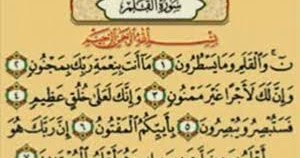 سورة القلم
بسم الله الرحمن الرحيم
نٓ ۚ وَٱلْقَلَمِ وَمَا يَسْطُرُونَ ١ مَآ أَنتَ بِنِعْمَةِ رَبِّكَ بِمَجْنُونٍ ٢
وَإِنَّ لَكَ لَأَجْرًا غَيْرَ مَمْنُونٍ ٣ وَإِنَّكَ لَعَلَىٰ خُلُقٍ عَظِيمٍ ٤
فَسَتُبْصِرُ وَيُبْصِرُونَ ٥ بِأَييِّكُمُ ٱلْمَفْتُونُ ٦ إِنَّ رَبَّكَ هُوَ